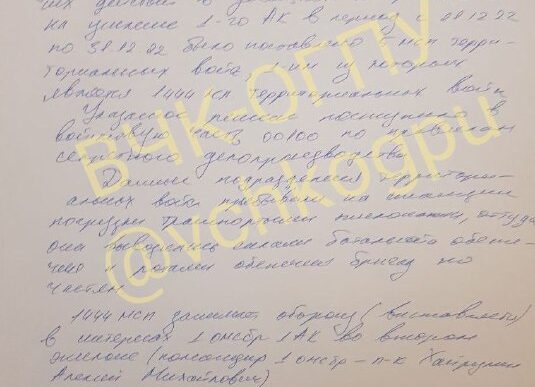 на усиление 1-го АК в период с 28.12.22
по 31.12.22 было поставлено 5 мсп терри-
ториальных войск, 1-им из которых
является 1444 мсп территориальных войск
Указанное поступило в
войсковую часть 00100 по правилам
секретного делопроизводства.
Данные подразделения территори-
альных войск прибывали на станции
погрузки транспортом, откуда
они
чения и ротами обеспечения бригад по
частям
1444 мсп занимает оборону (выставляется)
в интересах 1 омсбр 1 АК во втором
эшелоне (командир 1 омсбр - п-к
Алексей Михайлович)
ВЧК-ОГПУ
@vchkogpu